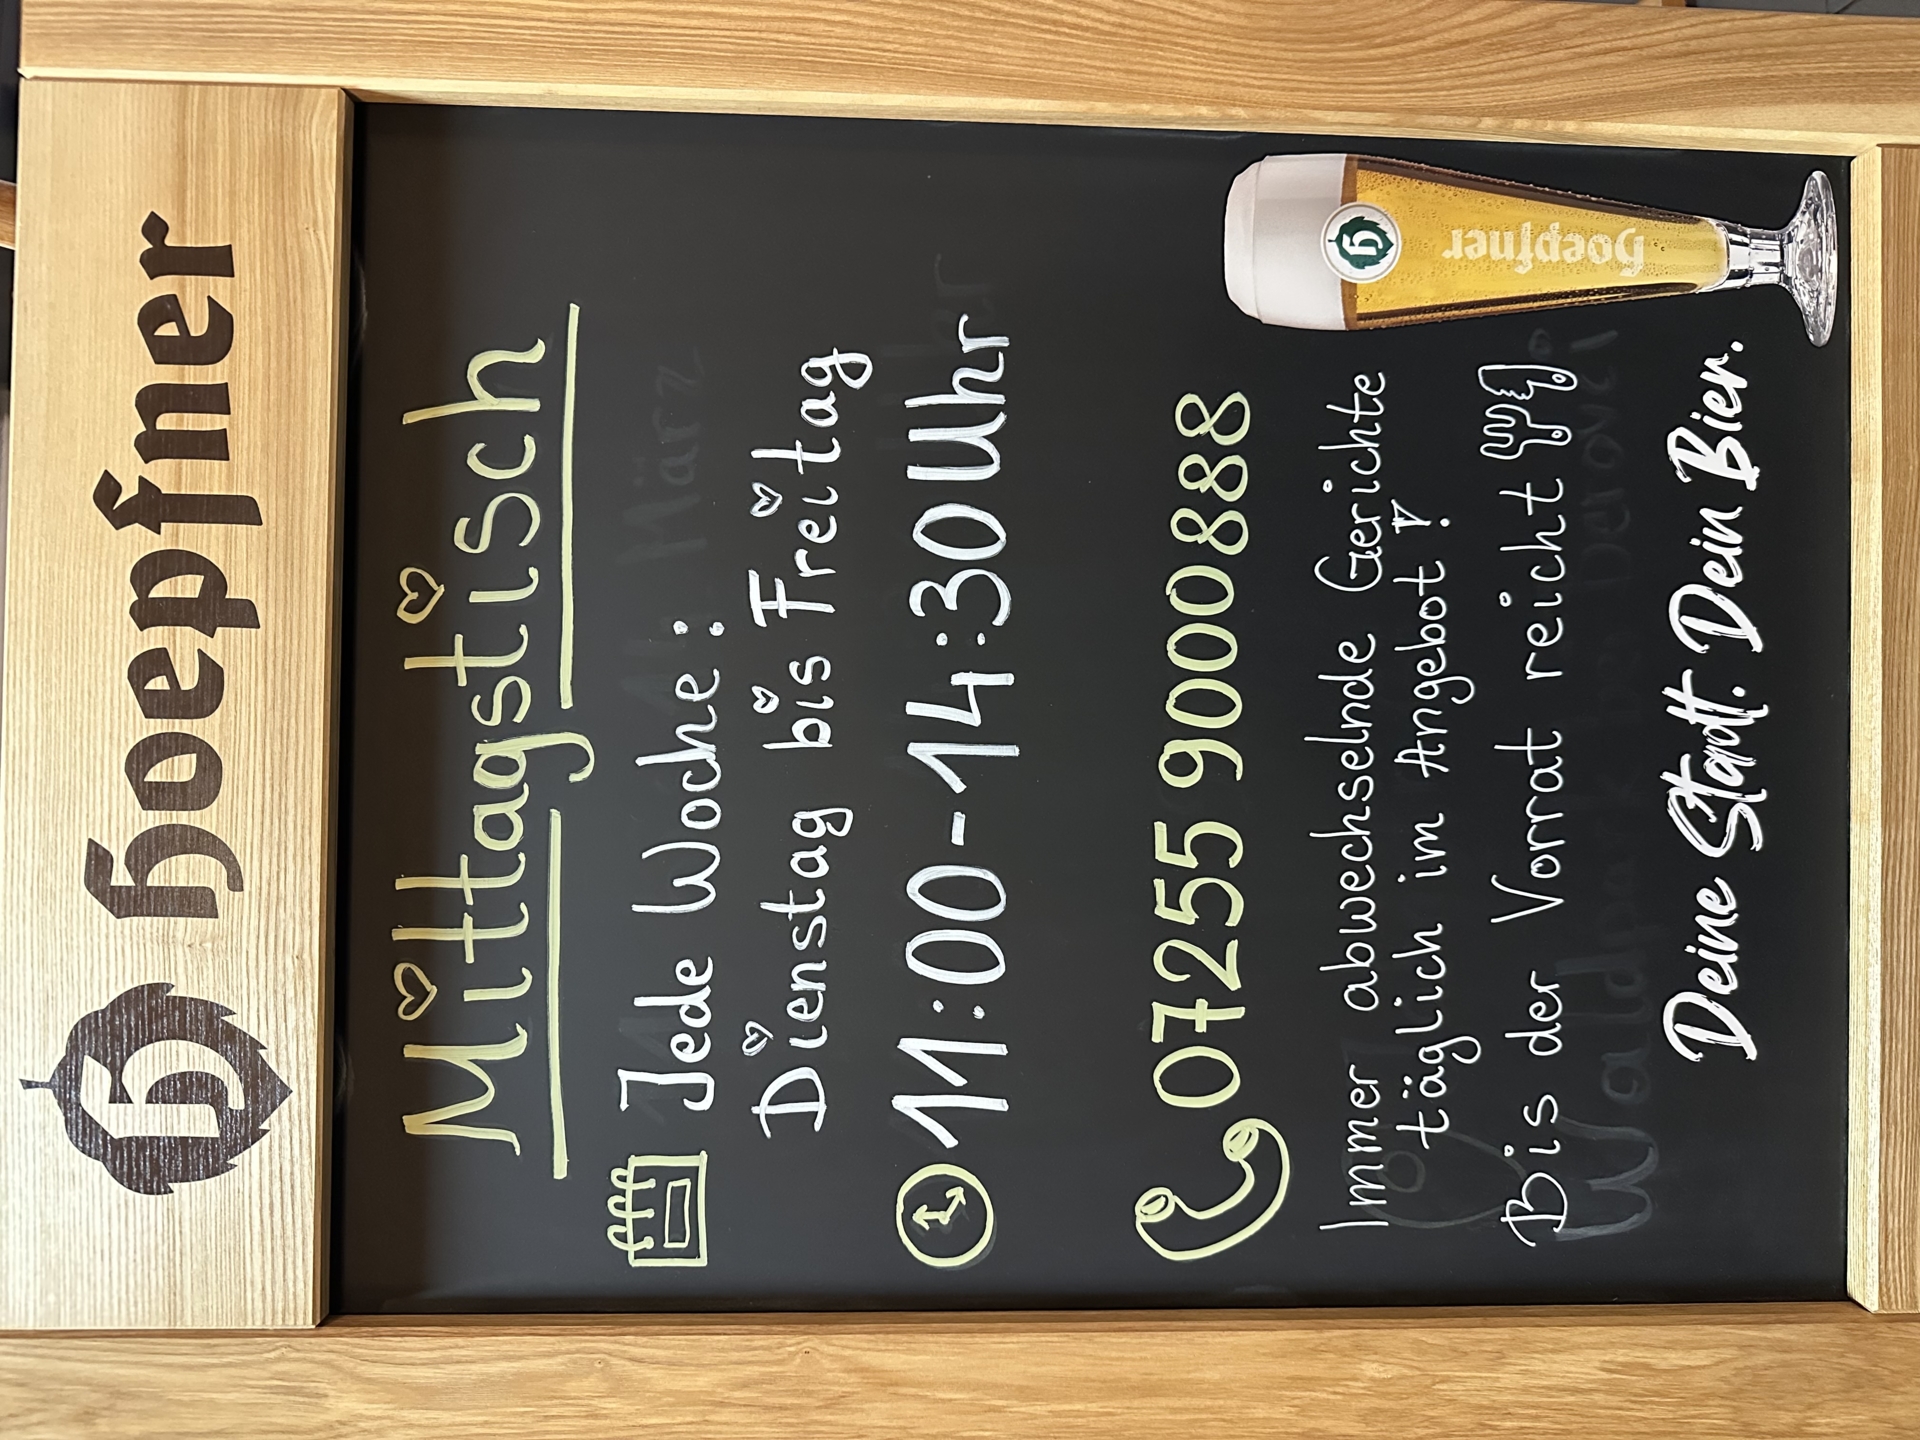 Hoepfner
Mittagstisch
Jede Woche:
Dienstag bis Freitag
11:00-14:30 Uhr
07255 9000888
Immer abwechselnde Gerichte
täglich im Angebot!
Bis der Vorrat reicht
Hoepfner
Deine Stadt. Dein Bier.